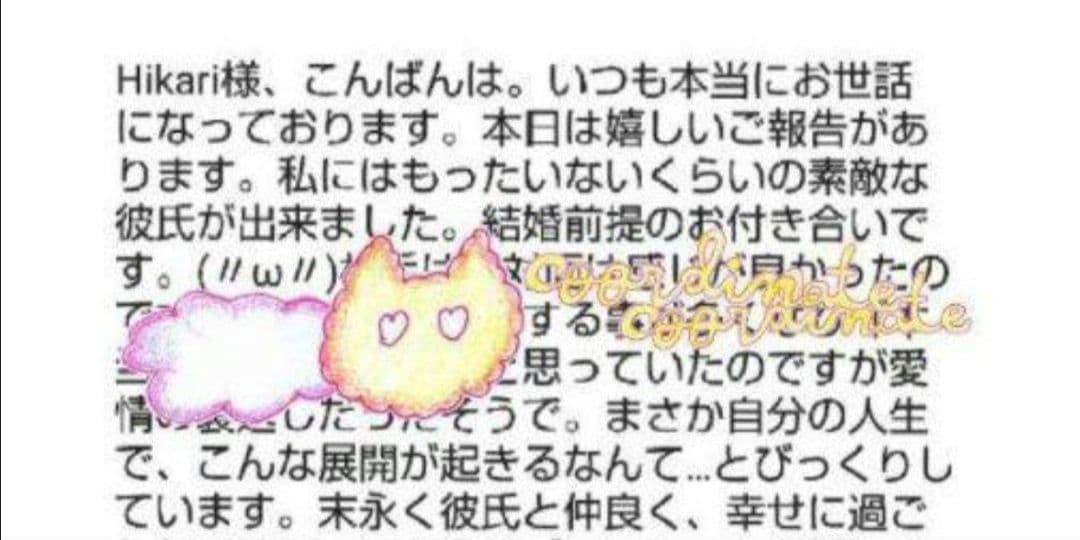 Hikari様、こんばんは。いつも本当にお世話
になっております。本日は嬉しいご報告があ
ります。私にはもったいないくらいの素敵な
彼氏が出来ました。結婚前提のお付き合いで
す。(〃ω〃)
coordinate
する
coordinate
思っていたのですが愛
情の裏返しだったそうで。まさか自分の人生
で、こんな展開が起きるなんて…とびっくりし
ています。末永く彼氏と仲良く、幸せに過ご